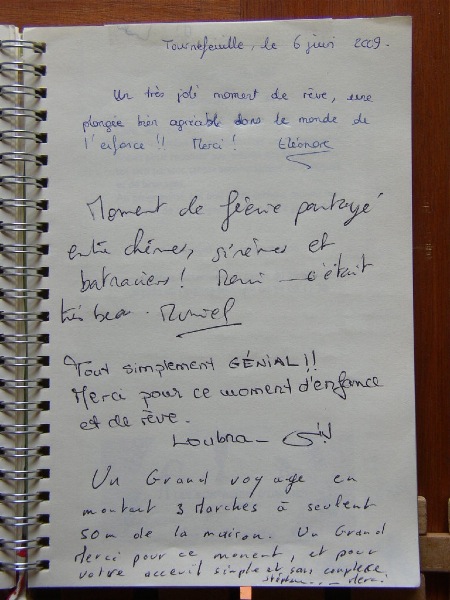 Tournefeuille, le 6 juin 2009.
Un très joli moment de rêve, une
plongée bien agréable dans le monde de
l'enfance !! Merci ! Eléonore
Moment de féerie partagé
entre chênes, sirènes et
batraciens ! Merci c'était
très beau. Muriel
Tout simplement GÉNIAL !!
Merci pour ce moment d'enfance
et de rêve.
Loubna
Un Grand voyage en
montant 3 Marches à seulement
50m de la maison. Un Grand
Merci pour ce moment, et pour
votre acceuil simple et sans complexe
Merci